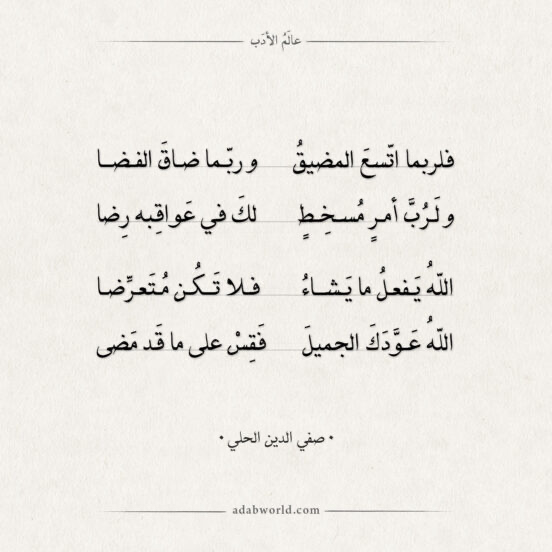 عالَمُ الأدَب
فلربما اتّسعَ المضيقُ وربّما ضاقَ الفضا
ولَرُبَّ أمرٍ مُسخِطٍ لكَ في عَواقِبه رِضا
اللّهُ يَفعلُ ما يَشاءُ فلا تَكُن مُتَعرِّضا
اللّهُ عَوَّدَكَ الجميلَ فَقِسْ على ما قَد مَضى
• صفي الدين الحلي •
adabworld.com